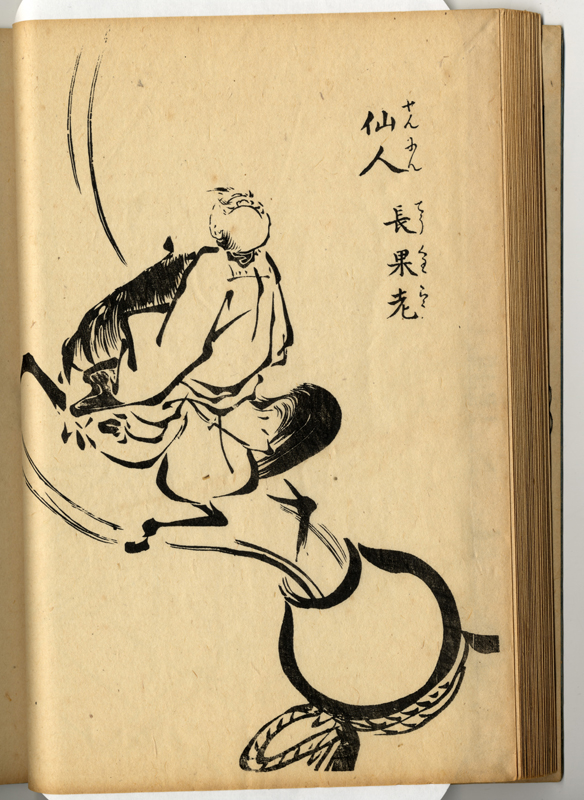 仙人 長果老
せんにん てうくわらう